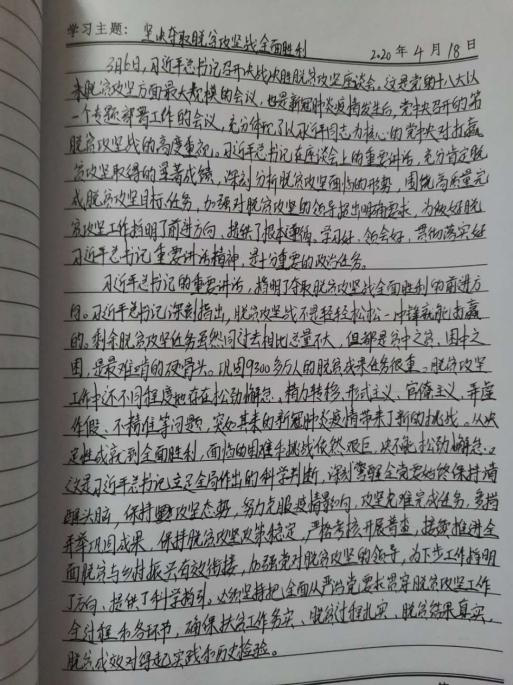 学习主题: 坚决夺取脱贫攻坚战全面胜利
2020年4月18日
3月6日,习近平总书记召开决战决胜脱贫攻坚座谈会。这是党的十八大以
来脱贫攻坚方面最大规模的会议,也是新冠肺炎疫情发生后,党中央召开的第
一个专题部署工作的会议,充分体现了以习近平同志为核心的党中央对打赢
脱贫攻坚战的高度重视。习近平总书记在座谈会上的重要讲话,充分肯定脱
贫攻坚取得的显著成绩,深刻分析脱贫攻坚面临的形势,围绕高质量完
成脱贫攻坚目标任务、加强对脱贫攻坚的领导提出明确要求,为做好脱
贫攻坚工作指明了前进方向、提供了根本遵循。学习好、领会好、贯彻落实好
习近平总书记重要讲话精神,是十分重要的政治任务。
习近平总书记的重要讲话,指明了夺取脱贫攻坚战全面胜利的前进方
向。习近平总书记深刻指出,脱贫攻坚战不是轻轻松松一冲锋就能打赢
的。剩余脱贫攻坚任务虽然同过去相比总量不大,但都是贫中之贫、困中之
困,是最难啃的硬骨头。巩固9300多万人的脱贫成果任务很重。脱贫攻坚
工作中还不同程度地存在松劲懈怠、精力转移、形式主义、官僚主义、弄虚
作假、不精准等问题,突如其来的新冠肺炎疫情带来了新的挑战。从决
定性成就到全面胜利,面临的困难和挑战依然艰巨,决不能松劲懈怠。
这是习近平总书记立足全局作出的科学判断,深刻警醒全党要始终保持清
醒头脑,保持攻坚态势,努力克服疫情影响,攻坚克难完成任务,多措
并举巩固成果,保持脱贫攻坚政策稳定,严格考核开展普查,接续推进全
面脱贫与乡村振兴有效衔接,加强党对脱贫攻坚的领导,为下步工作指明
了方向、提供了科学指引。必须坚持把全面从严治党要求贯穿脱贫攻坚工作
全过程和各环节,确保扶贫工作务实、脱贫过程扎实、脱贫结果真实,
脱贫成效对得起实践和历史检验。